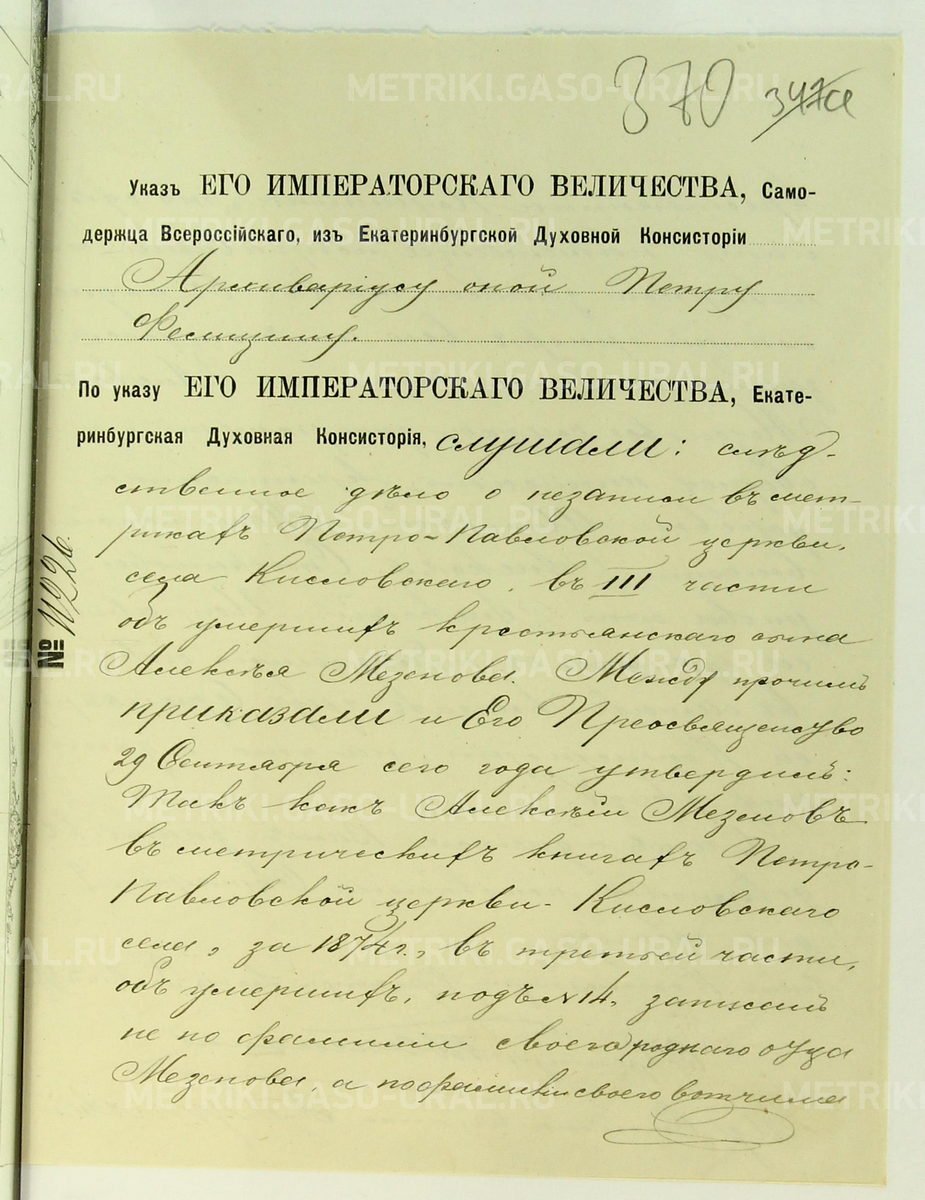 370 347а
Указъ ЕГО ИМПЕРАТОРСКАГО ВЕЛИЧЕСТВА, Само-
держца Всероссійскаго, изъ Екатеринбургской Духовной Консисторіи
Архиваріусу оной Петру
По указу ЕГО ИМПЕРАТОРСКАГО ВЕЛИЧЕСТВА, Екате-
ринбургская Духовная Консисторія, слушали: слѣд-
ственное дѣло о незаписи въ мет-
рикахъ Петро-Павловской церкви,
села Кисловскаго, въ III части
объ умершихъ крестьянскаго сына
Алексѣя Мезенова. Между прочимъ
приказали и Его Преосвященство
29 Сентября сего года утвердилъ:
Такъ какъ Алексѣй Мезеновъ
въ метрическихъ книгахъ Петро-
Павловской церкви Кисловскаго
села, за 1874 г., въ третьей части,
объ умершихъ, подъ № 14, записанъ
не по фамиліи своего роднаго отца
Мезенова, а по фамиліи своего вотчима
№ 11226.
METRIKI.GASO-URAL.RU